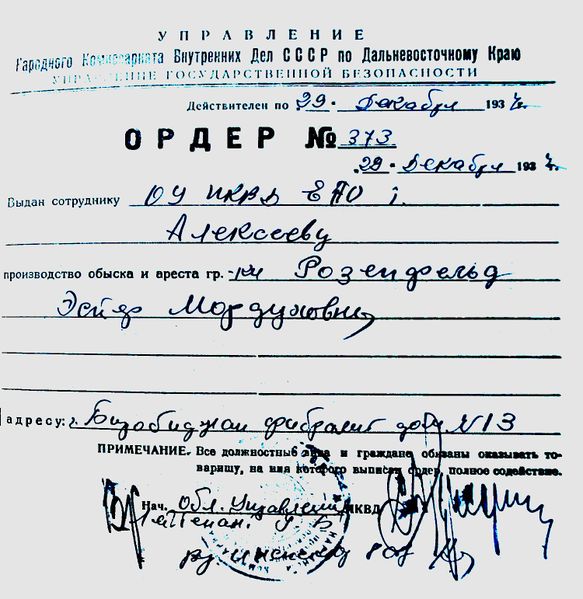 УПРАВЛЕНИЕ
Народного Комиссариата Внутренних Дел СССР по Дальневосточному Краю
УПРАВЛЕНИЕ ГОСУДАРСТВЕННОЙ БЕЗОПАСНОСТИ
Действителен по 29. Декабря 1937г.
ОРДЕР № 373
29. Декабря 1937г.
Выдан сотруднику ОУ НКВД ЕАО т.
Алексееву
производство обыска и ареста гр.-ки Розенфельд
Эсфирь Мордуховны
адресу: г. Биробиджан фибролит дом N13
ПРИМЕЧАНИЕ. Все должностные лица и граждане обязаны оказывать то-
варищу, на имя которого выписан ордер, полное содействие.
Нач. Обл. Управления НКВД
Лейтенант Г Б